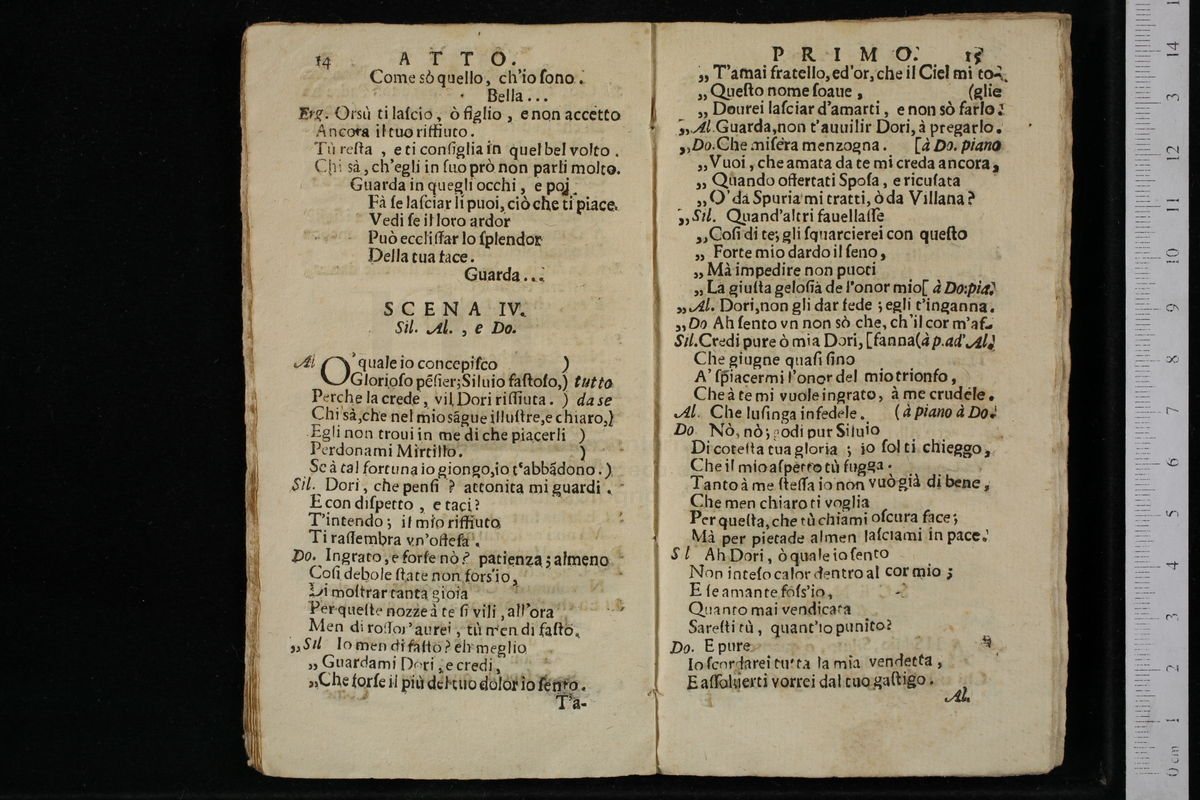 14 ATTO.
Come sò quello, ch'io ſono.
Bella...
Erg. Orsù ti laſcio, ò figlio, e non accetto
Ancora il tuo riffiuto.
Tù reſta, e ti conſiglia in quel bel volto.
Chi sà, ch'egli in ſuo prò non parli molto.
Guarda in quegli occhi, e poi
Fà ſe laſciar li puoi, ciò che ti piace.
Vedi ſe il loro ardor
Può eccliſſar lo ſplendor
Della tua face.
Guarda...
SCENA IV.
Sil. Al., e Do.
Al O' quale io concepiſco )
Glorioſo pẽſier; Siluio faſtoſo,) tutto
Perche la crede, vil Dori riffiuta. ) da se
Chi sà, che nel mio sãgue illuſtre, e chiaro,)
Egli non troui in me di che piacerli )
Perdonami Mirtillo. )
Se à tal fortuna io giongo, io t'abbãdono.)
Sil. Dori, che penſi ? attonita mi guardi.
E con diſpetto, e taci?
T'intendo; il mio riffiuto
Ti raſſembra vn'offeſa.
Do. Ingrato, e forſe nò ? patienza; almeno
Coſi debole ſtate non fors'io,
Di moſtrar tanta gioia
Per queſte nozze à te ſi vili, all'ora
Men di roſſor' aurei, tù men di faſto.
„Sil Io men di faſto? eh meglio
„ Guardami Dori, e credi,
„Che forſe il più del tuo dolor io ſento.
T'a-
PRIMO. 15
„ T'amai fratello, ed'or, che il Ciel mi to-
„ Queſto nome ſoaue, (glie
„ Dourei laſciar d'amarti, e non sò farlo.
„Al. Guarda, non t'auuilir Dori, à pregarlo.
„Do. Che miſera menzogna. [à Do. piano
„Vuoi, che amata da te mi creda ancora,
„ Quando offertati Spoſa, e ricuſata
„O' da Spuria mi tratti, ò da Villana?
„Sil. Quand'altri fauellaſſe
„Coſi di te; gli ſquarcierei con queſto
„ Forte mio dardo il ſeno,
„Mà impedire non puoti
„La giuſta geloſià de l'onor mio[ à Do: pia.
„Al. Dori, non gli dar fede; egli t'inganna.
„Do Ah ſento vn non sò che, ch'il cor m'af-
Sil. Credi pure ò mia Dori, [fanna(à p. ad' Al.
Che giugne quaſi ſino
A' ſpiacermi l'onor del mio trionfo,
Che à te mi vuole ingrato, à me crudele.
Al. Che luſinga infedele. (à piano à Do.
Do Nò, nò; godi pur Siluio
Di coteſta tua gloria; io ſol ti chieggo,
Che il mio aſpetto tù fugga.
Tanto à me ſteſſa io non vuò già di bene,
Che men chiaro ti voglia
Per queſta, che tù chiami oſcura face;
Mà per pietade almen laſciami in pace.
S l Ah Dori, ò quale io ſento
Non inteſo calor dentro al cor mio;
E ſe amante foſs'io,
Quanto mai vendicata
Sareſti tù, quant'io punito?
Do. E pure
Io ſcordarei tutta la mia vendetta,
E aſſoluerti vorrei dal tuo gaſtigo.
Al.